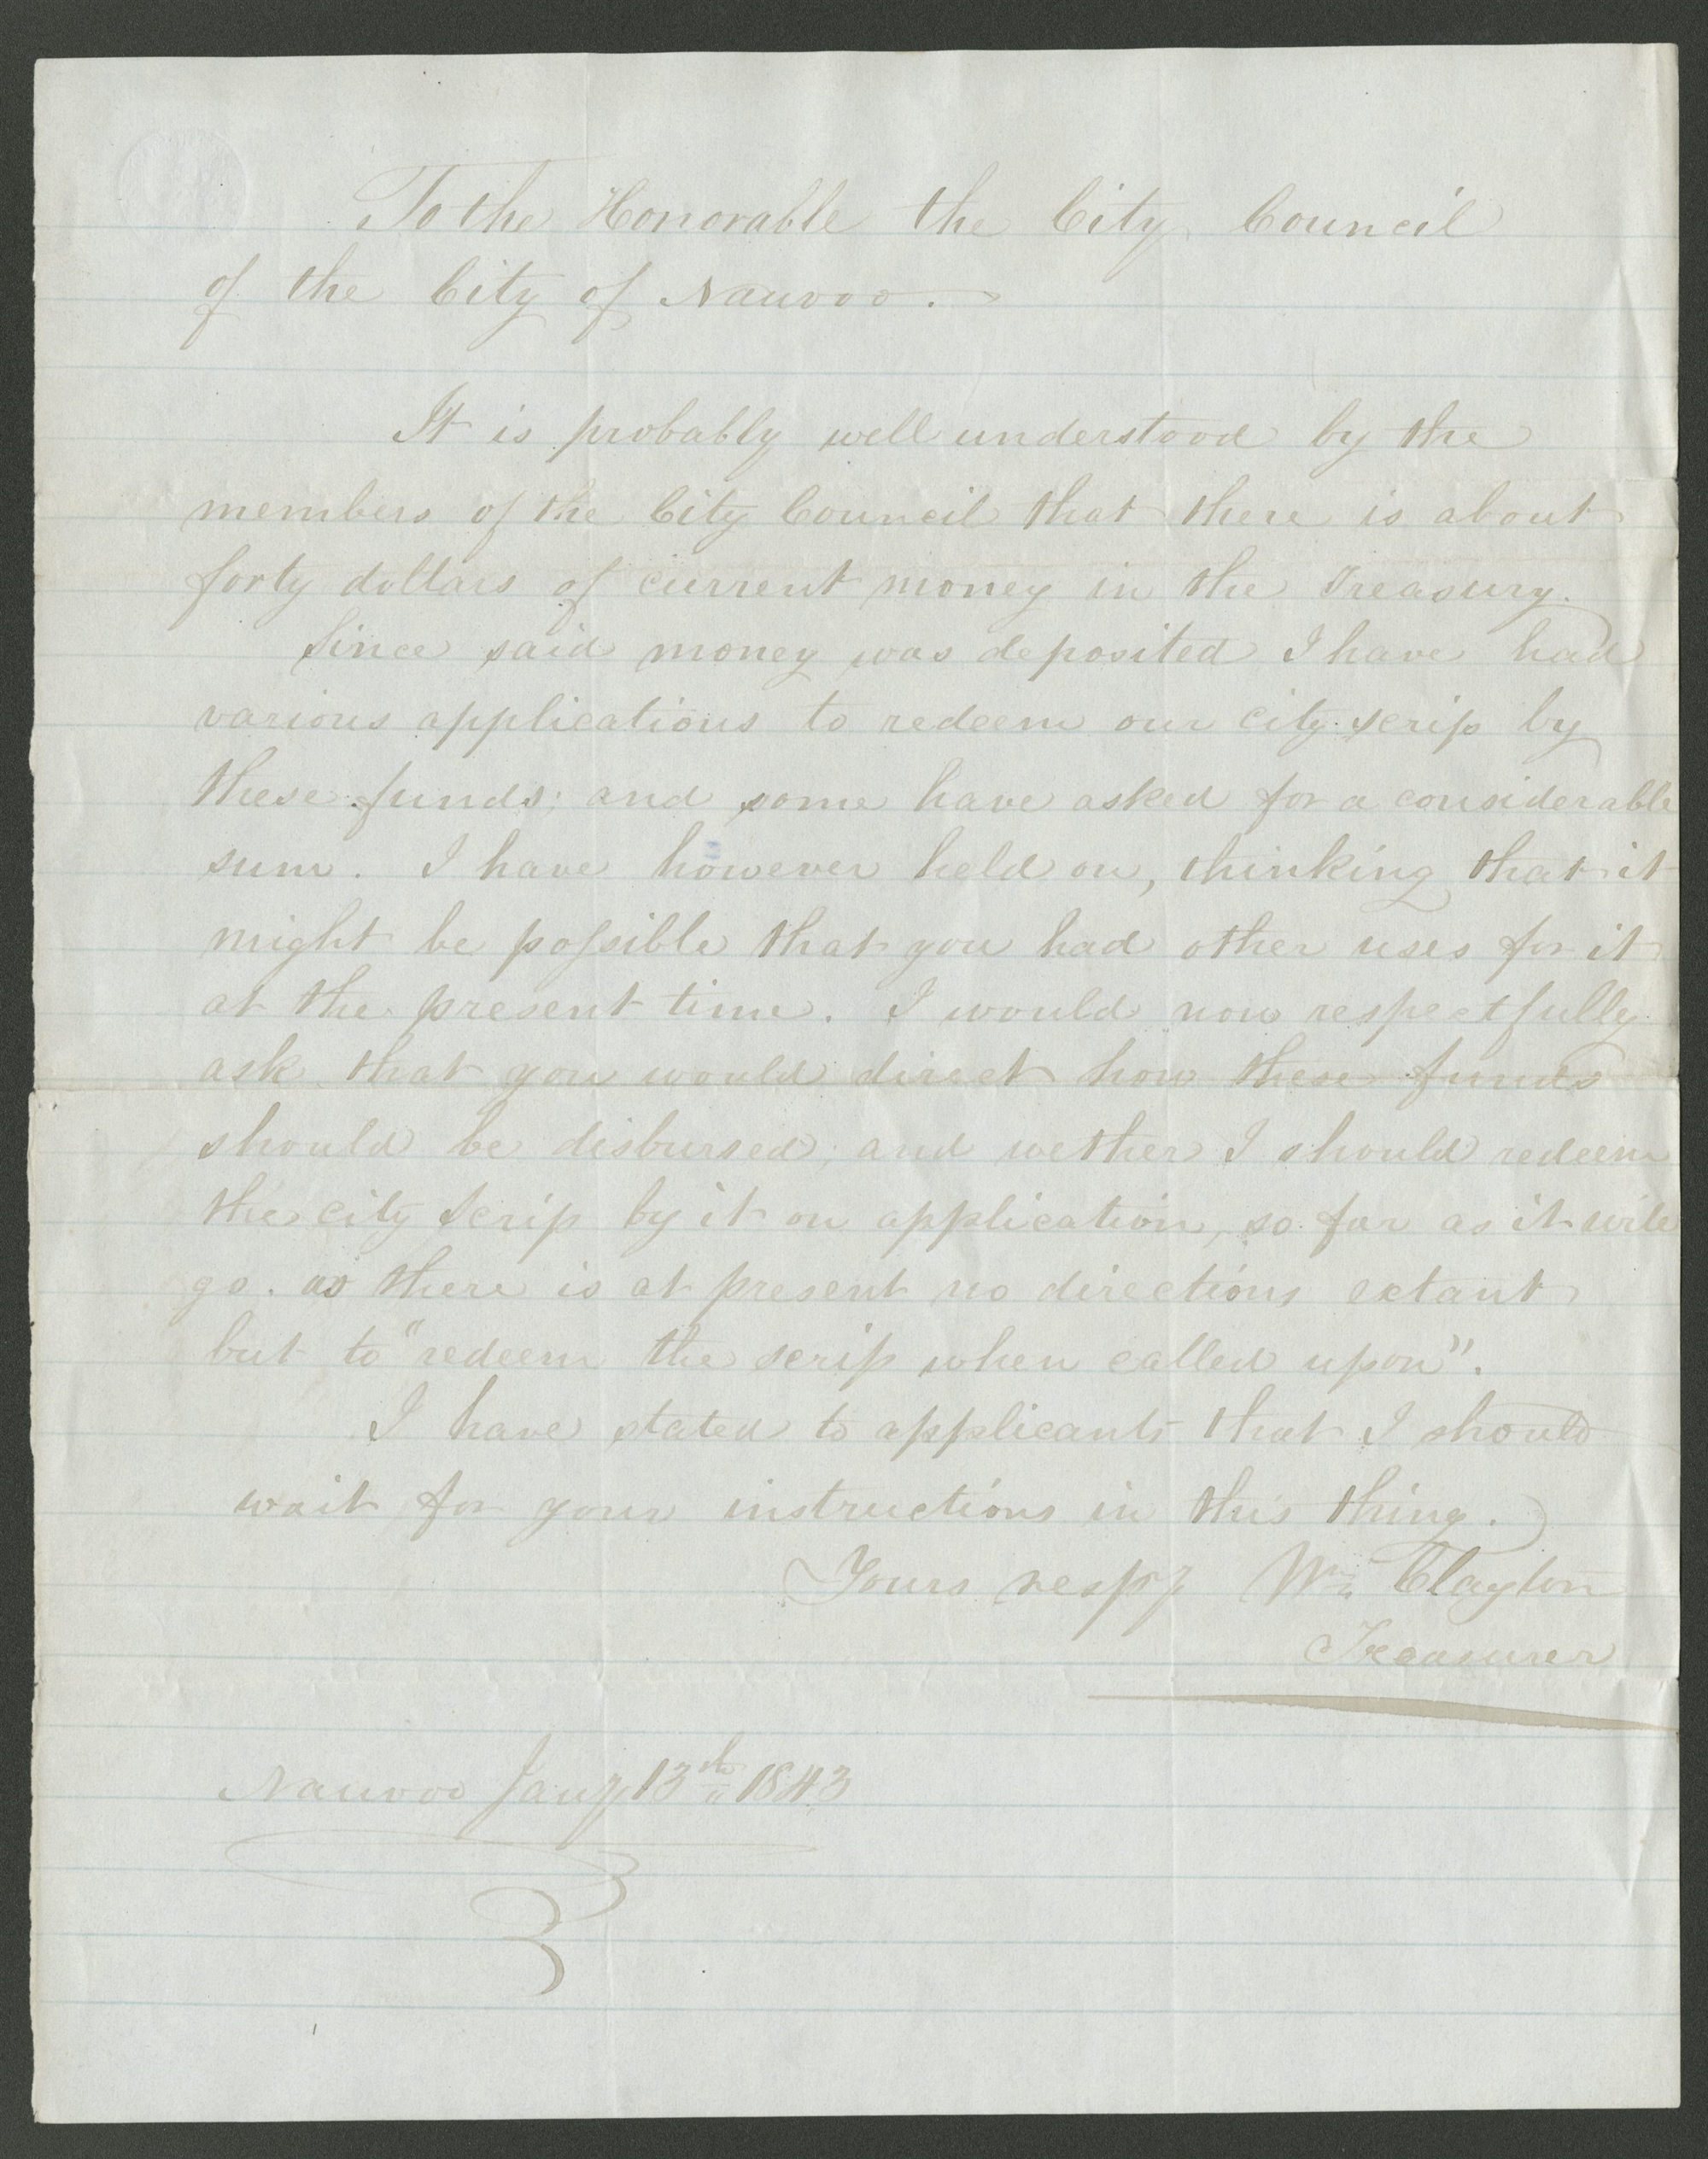 To the Honorable the City Council
of the City of Nauvoo.
It is probably well understood by the
members of the City Council that there is about
forty dollars of current money in the Treasury.
Since said money was deposited I have had
various applications to redeem our city scrip by
these funds; and some have asked for a considerable
sum. I have however held on, thinking that it
might be possible that you had other uses for it
at the present time. I would now respectfully
ask that you would direct how these funds
should be disbursed; and wether I should redeem
the city scrip by it on application, so far as it will
go. as there is at present no directions extant
but to "redeem the scrip when called upon".
I have stated to applicants that I should
wait for your instructions in this thing.
Yours respy Wm Clayton
Treasurer
Nauvoo Jany 13th 1843